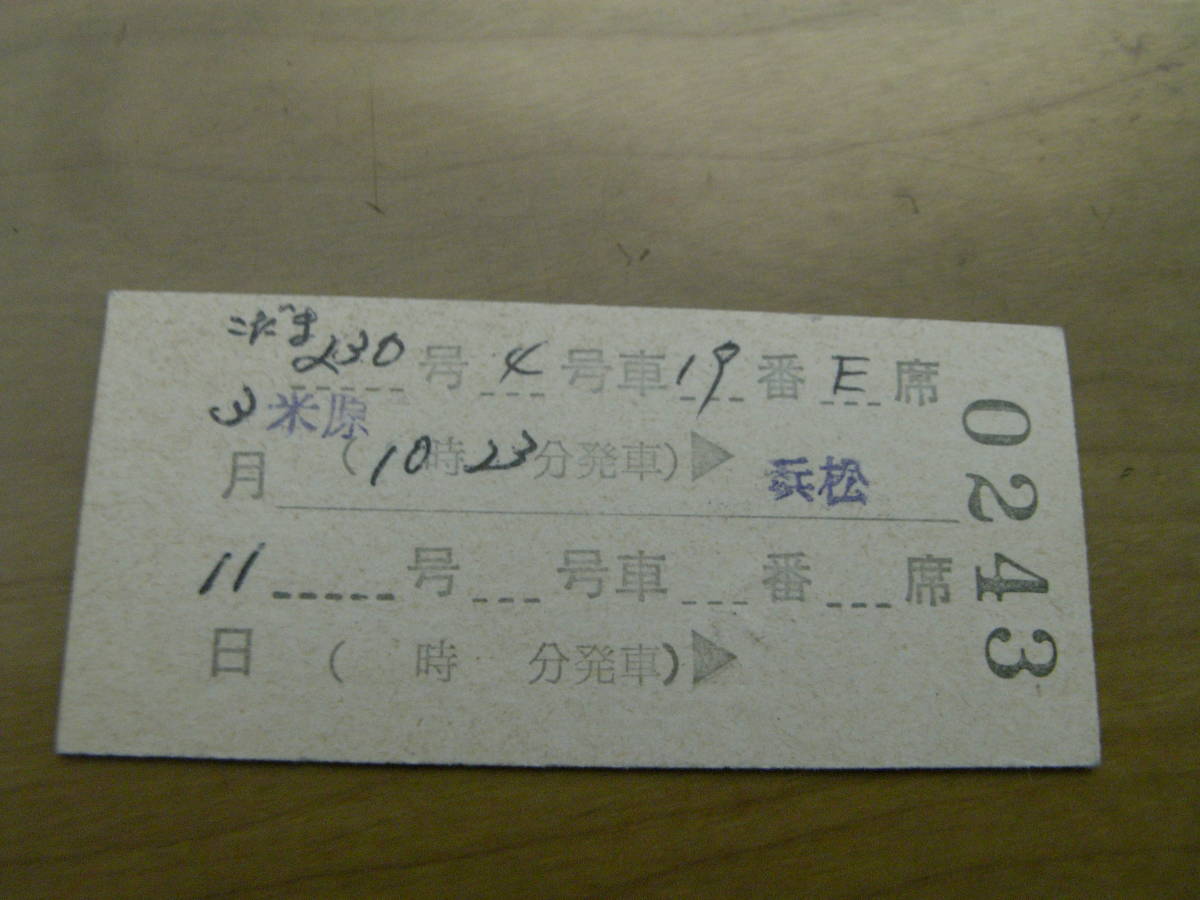 こだま
230号 4号車 19番 E席
3月 米原
(10時23分発車)▶ 浜松
11日 号 号車 番 席
( 時 分発車)▶
0243